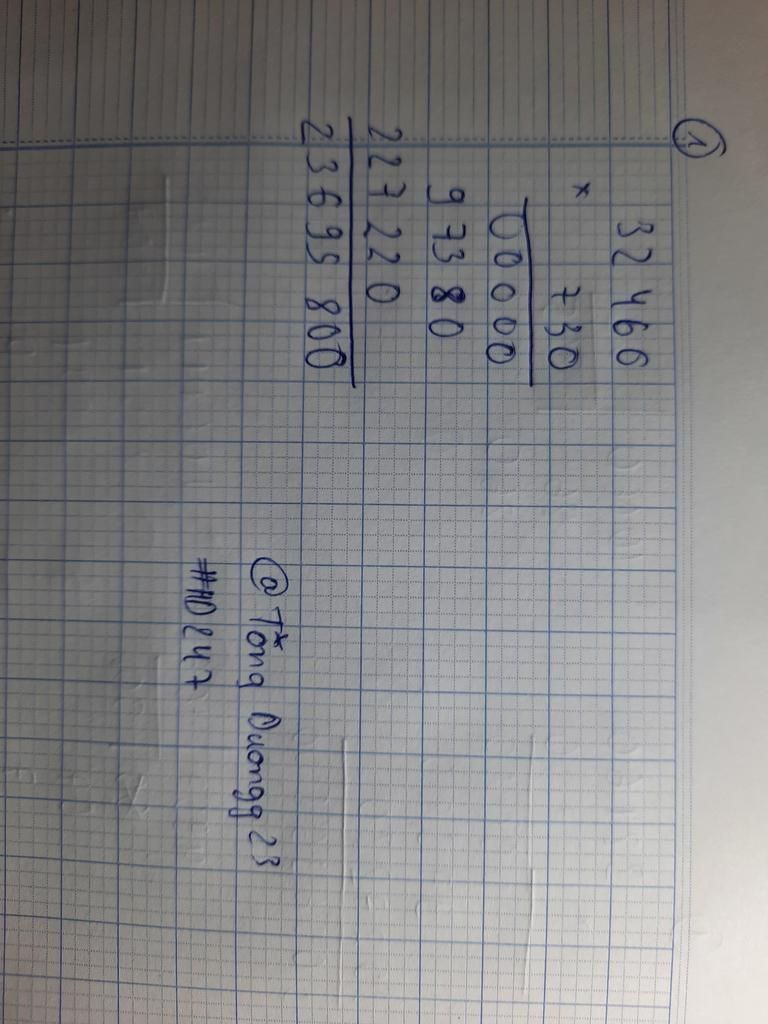 1
32 460
× 730
00000
97380
227220
23695 800
@T*ong Duongg 23
#HD247